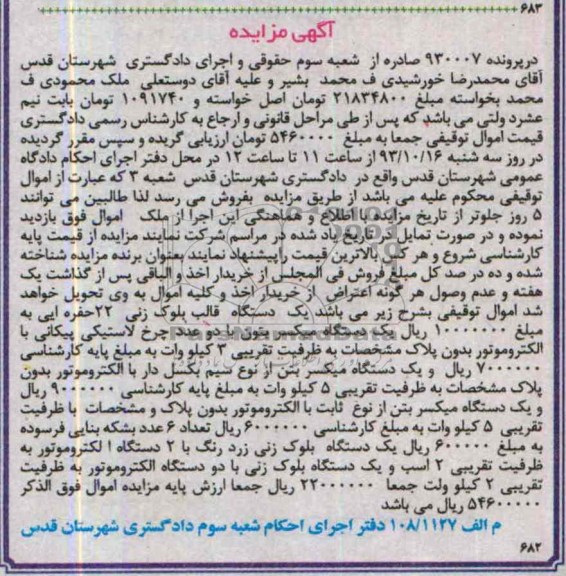 ۶۸۳
آگهی مزایده
درپرونده ۹۳۰۰۰۷ صادره از شعبه سوم حقوقی و اجرای دادگستری شهرستان قدس
آقای محمدرضا خورشیدی ف محمد بشیر و علیه آقای دوستعلی ملک محمودی ف
محمد بخواسته مبلغ ۲۱۸۳۴۸۰۰ تومان اصل خواسته و ۱۰۹۱۷۴۰ تومان بابت نیم
عشرد ولتی می باشد که پس از طی مراحل قانونی و ارجاع به کارشناس رسمی دادگستری
قیمت اموال توقیفی جمعا به مبلغ ۵۴۶۰۰۰۰ تومان ارزیابی گریده و سپس مقرر گردیده
در روز سه شنبه ۹۳/۱۰/۱۶ از ساعت ۱۱ تا ساعت ۱۲ در محل دفتر اجرای احکام دادگاه
عمومی شهرستان قدس واقع در دادگستری شهرستان قدس شعبه ۳ که عبارت از اموال
توقیفی محکوم علیه می باشد از طریق مزایده بفروش می رسد لذا طالبین می توانند
۵ روز جلوتر از تاریخ مزایده با اطلاع و هماهنگی این اجرا از ملک اموال فوق بازدید
نموده و در صورت تمایل در تاریخ یاد شده در مراسم شرکت نمایند مزایده از قیمت پایه
کارشناسی شروع و هر کس بالاترین قیمت را پیشنهاد نمایند بعنوان برنده مزایده شناخته
شده و ده در صد کل مبلغ فروش فی المجلس از خریدار اخذ و الباقی پس از گذاشت یک
هفته و عدم وصول هر گونه اعتراض از خریدار اخذ و کلیه اموال به وی تحویل خواهد
شد اموال توقیفی بشرح زیر می باشد یک دستگاه قالب بلوک زنی ۲۲حفره ایی به
مبلغ ۱۰۰۰۰۰۰۰ ریال یک دستگاه میکسر بتون با دو عدد چرخ لاستیکی پیکانی با
الکتروموتور بدون پلاک مشخصات به ظرفیت تقریبی ۳ کیلو وات به مبلغ پایه کارشناسی
۷۰۰۰۰۰۰ ریال و یک دستگاه میکسر بتن از نوع سیم بکسل دار با الکتروموتور بدون
پلاک مشخصات به ظرفیت تقریبی ۵ کیلو وات به مبلغ پایه کارشناسی ۹۰۰۰۰۰۰ ریال
و یک دستگاه میکسر بتن از نوع ثابت با الکتروموتور بدون پلاک و مشخصات با ظرفیت
تقریبی ۵ کیلو وات به مبلغ کارشناسی ۶۰۰۰۰۰۰ ریال تعداد ۶ عدد بشکه بنایی فرسوده
به مبلغ ۶۰۰۰۰۰ ریال یک دستگاه بلوک زنی زرد رنگ با ۲ دستگاه ا لکتروموتور به
ظرفیت تقریبی ۲ اسب و یک دستگاه بلوک زنی با دو دستگاه الکتروموتور به ظرفیت
تقریبی ۲ کیلو ولت جمعا ۲۲۰۰۰۰۰۰ ریال جمعا ارزش پایه مزایده اموال فوق الذکر
۵۴۶۰۰۰۰۰ ریال می باشد
م الف ۱۰۸/۱۱۲۷ دفتر اجرای احکام شعبه سوم دادگستری شهرستان قدس
۶۸۲